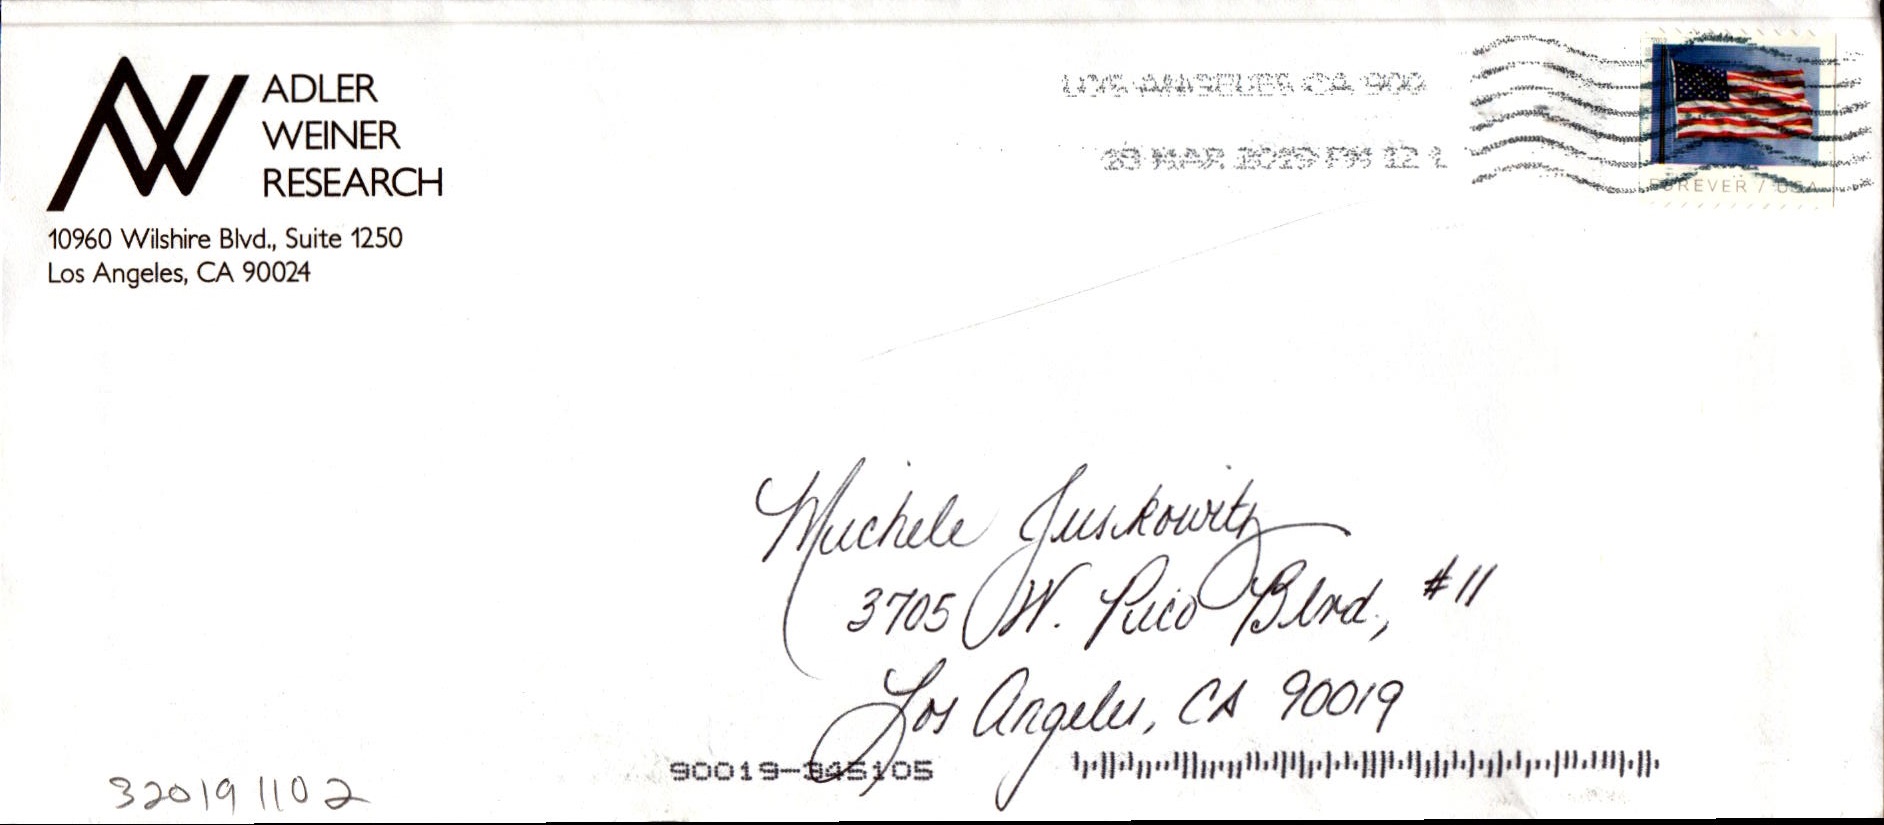 ADLER
WEINER
RESEARCH
10960 Wilshire Blvd., Suite 1250
Los Angeles, CA 90024
LOS ANGELES CA 900
28 MAR 2019 PM 12 L
FOREVER / USA
Michele Juskowitz
3705 W. Pico Blvd., #11
Los Angeles, CA 90019
90019-345105
320191102